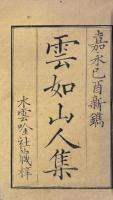 嘉永己酉新鐫
雲如山人集
水雲唫社藏梓